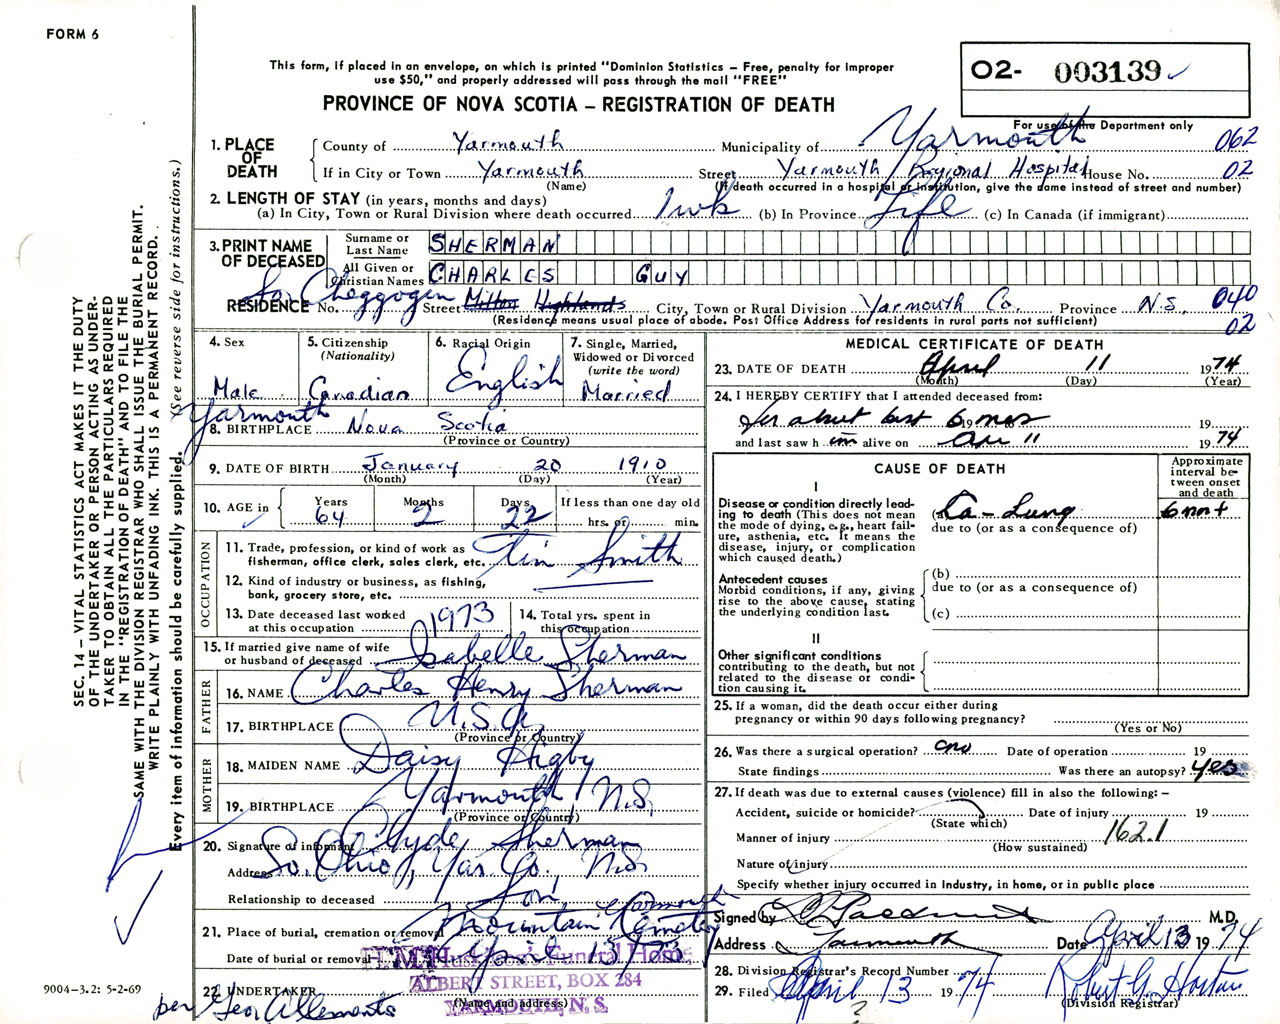 FORM 6
This form, if placed in an envelope, on which is printed "Dominion Statistics – Free, penalty for improper
use $50," and properly addressed will pass through the mail "FREE"
PROVINCE OF NOVA SCOTIA – REGISTRATION OF DEATH
O2- 003139
For use of the Department only
1. PLACE OF DEATH
County of Yarmouth Municipality of Yarmouth 062
If in City or Town Yarmouth Street Yarmouth Regional Hospital House No. 02
(Name) (If death occurred in a hospital or institution, give the name instead of street and number)
2. LENGTH OF STAY (in years, months and days)
(a) In City, Town or Rural Division where death occurred 1 wk (b) In Province Life (c) In Canada (if immigrant)
3. PRINT NAME OF DECEASED
Surname or Last Name SHERMAN
All Given or Christian Names CHARLES GUY
So. Cheggogin
RESIDENCE No. Street Milton Highlands City, Town or Rural Division Yarmouth Co. Province N.S. 040
(Residence means usual place of abode. Post Office Address for residents in rural parts not sufficient) 02
4. Sex Male
5. Citizenship (Nationality) Canadian
6. Racial Origin English
7. Single, Married, Widowed or Divorced (write the word) Married
Yarmouth
8. BIRTHPLACE Nova Scotia
(Province or Country)
9. DATE OF BIRTH January 20 1910
(Month) (Day) (Year)
10. AGE in Years 64 Months 2 Days 22 If less than one day old hrs. or min.
OCCUPATION
11. Trade, profession, or kind of work as fisherman, office clerk, sales clerk, etc. Tin Smith
12. Kind of industry or business, as fishing, bank, grocery store, etc.
13. Date deceased last worked at this occupation 1973
14. Total yrs. spent in this occupation
15. If married give name of wife or husband of deceased Isabelle Sherman
FATHER
16. NAME Charles Henry Sherman
17. BIRTHPLACE U.S.A.
(Province or Country)
MOTHER
18. MAIDEN NAME Daisy Higby
19. BIRTHPLACE Yarmouth, N.S.
(Province or Country)
20. Signature of informant Clyde Sherman
Address So. Ohio, Yar. Co. N.S.
Relationship to deceased Son
21. Place of burial, cremation or removal Yarmouth Mountain Cemetery
Date of burial or removal April 13
22. UNDERTAKER
(Name and address)
Huskilson's Funeral Home
ALBERT STREET, BOX 284
YARMOUTH, N. S.
per Geo Allements
9004-3.2: 5-2-69
MEDICAL CERTIFICATE OF DEATH
23. DATE OF DEATH April 11 1974
(Month) (Day) (Year)
24. I HEREBY CERTIFY that I attended deceased from:
for about last 6 mos 19
and last saw h im alive on Apr 11 1974
CAUSE OF DEATH
Approximate interval between onset and death
I
Disease or condition directly leading to death (This does not mean the mode of dying, e.g., heart failure, asthenia, etc. It means the disease, injury, or complication which caused death.)
(a) Ca - Lung 6 mo +
due to (or as a consequence of)
Antecedent causes
Morbid conditions, if any, giving rise to the above cause, stating the underlying condition last.
(b)
due to (or as a consequence of)
(c)
II
Other significant conditions
contributing to the death, but not related to the disease or condition causing it.
25. If a woman, did the death occur either during pregnancy or within 90 days following pregnancy?
(Yes or No)
26. Was there a surgical operation? no Date of operation 19
State findings Was there an autopsy? yes
27. If death was due to external causes (violence) fill in also the following: –
Accident, suicide or homicide? Date of injury 19
(State which)
Manner of injury 162.1
(How sustained)
Nature of injury
Specify whether injury occurred in industry, in home, or in public place
Signed by M.D.
Address Yarmouth Date April 13 1974
28. Division Registrar's Record Number
29. Filed April 13 1974 Robert G. Horton
(Division Registrar)
SEC. 14 – VITAL STATISTICS ACT MAKES IT THE DUTY
OF THE UNDERTAKER OR PERSON ACTING AS UNDER-
TAKER TO OBTAIN ALL THE PARTICULARS REQUIRED
IN THE "REGISTRATION OF DEATH" AND TO FILE THE
SAME WITH THE DIVISION REGISTRAR WHO SHALL ISSUE THE BURIAL PERMIT.
WRITE PLAINLY WITH UNFADING INK. THIS IS A PERMANENT RECORD.
Every item of information should be carefully supplied. (See reverse side for instructions.)